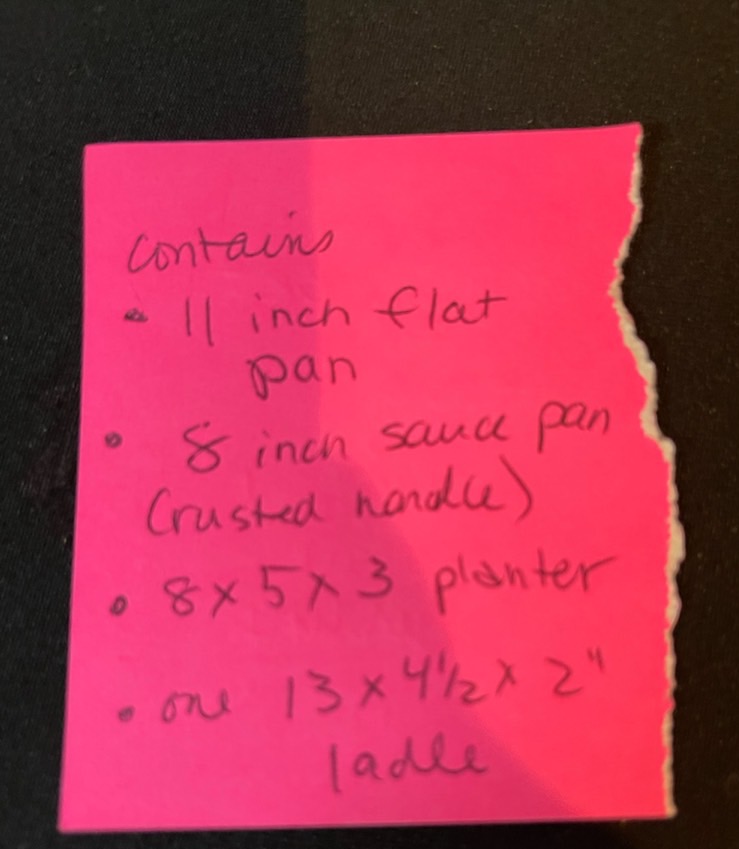 contains
• 11 inch flat
pan
• 8 inch sauce pan
(rusted handle)
• 8 x 5 x 3 planter
• one 13 x 4 1/2 x 2"
ladle